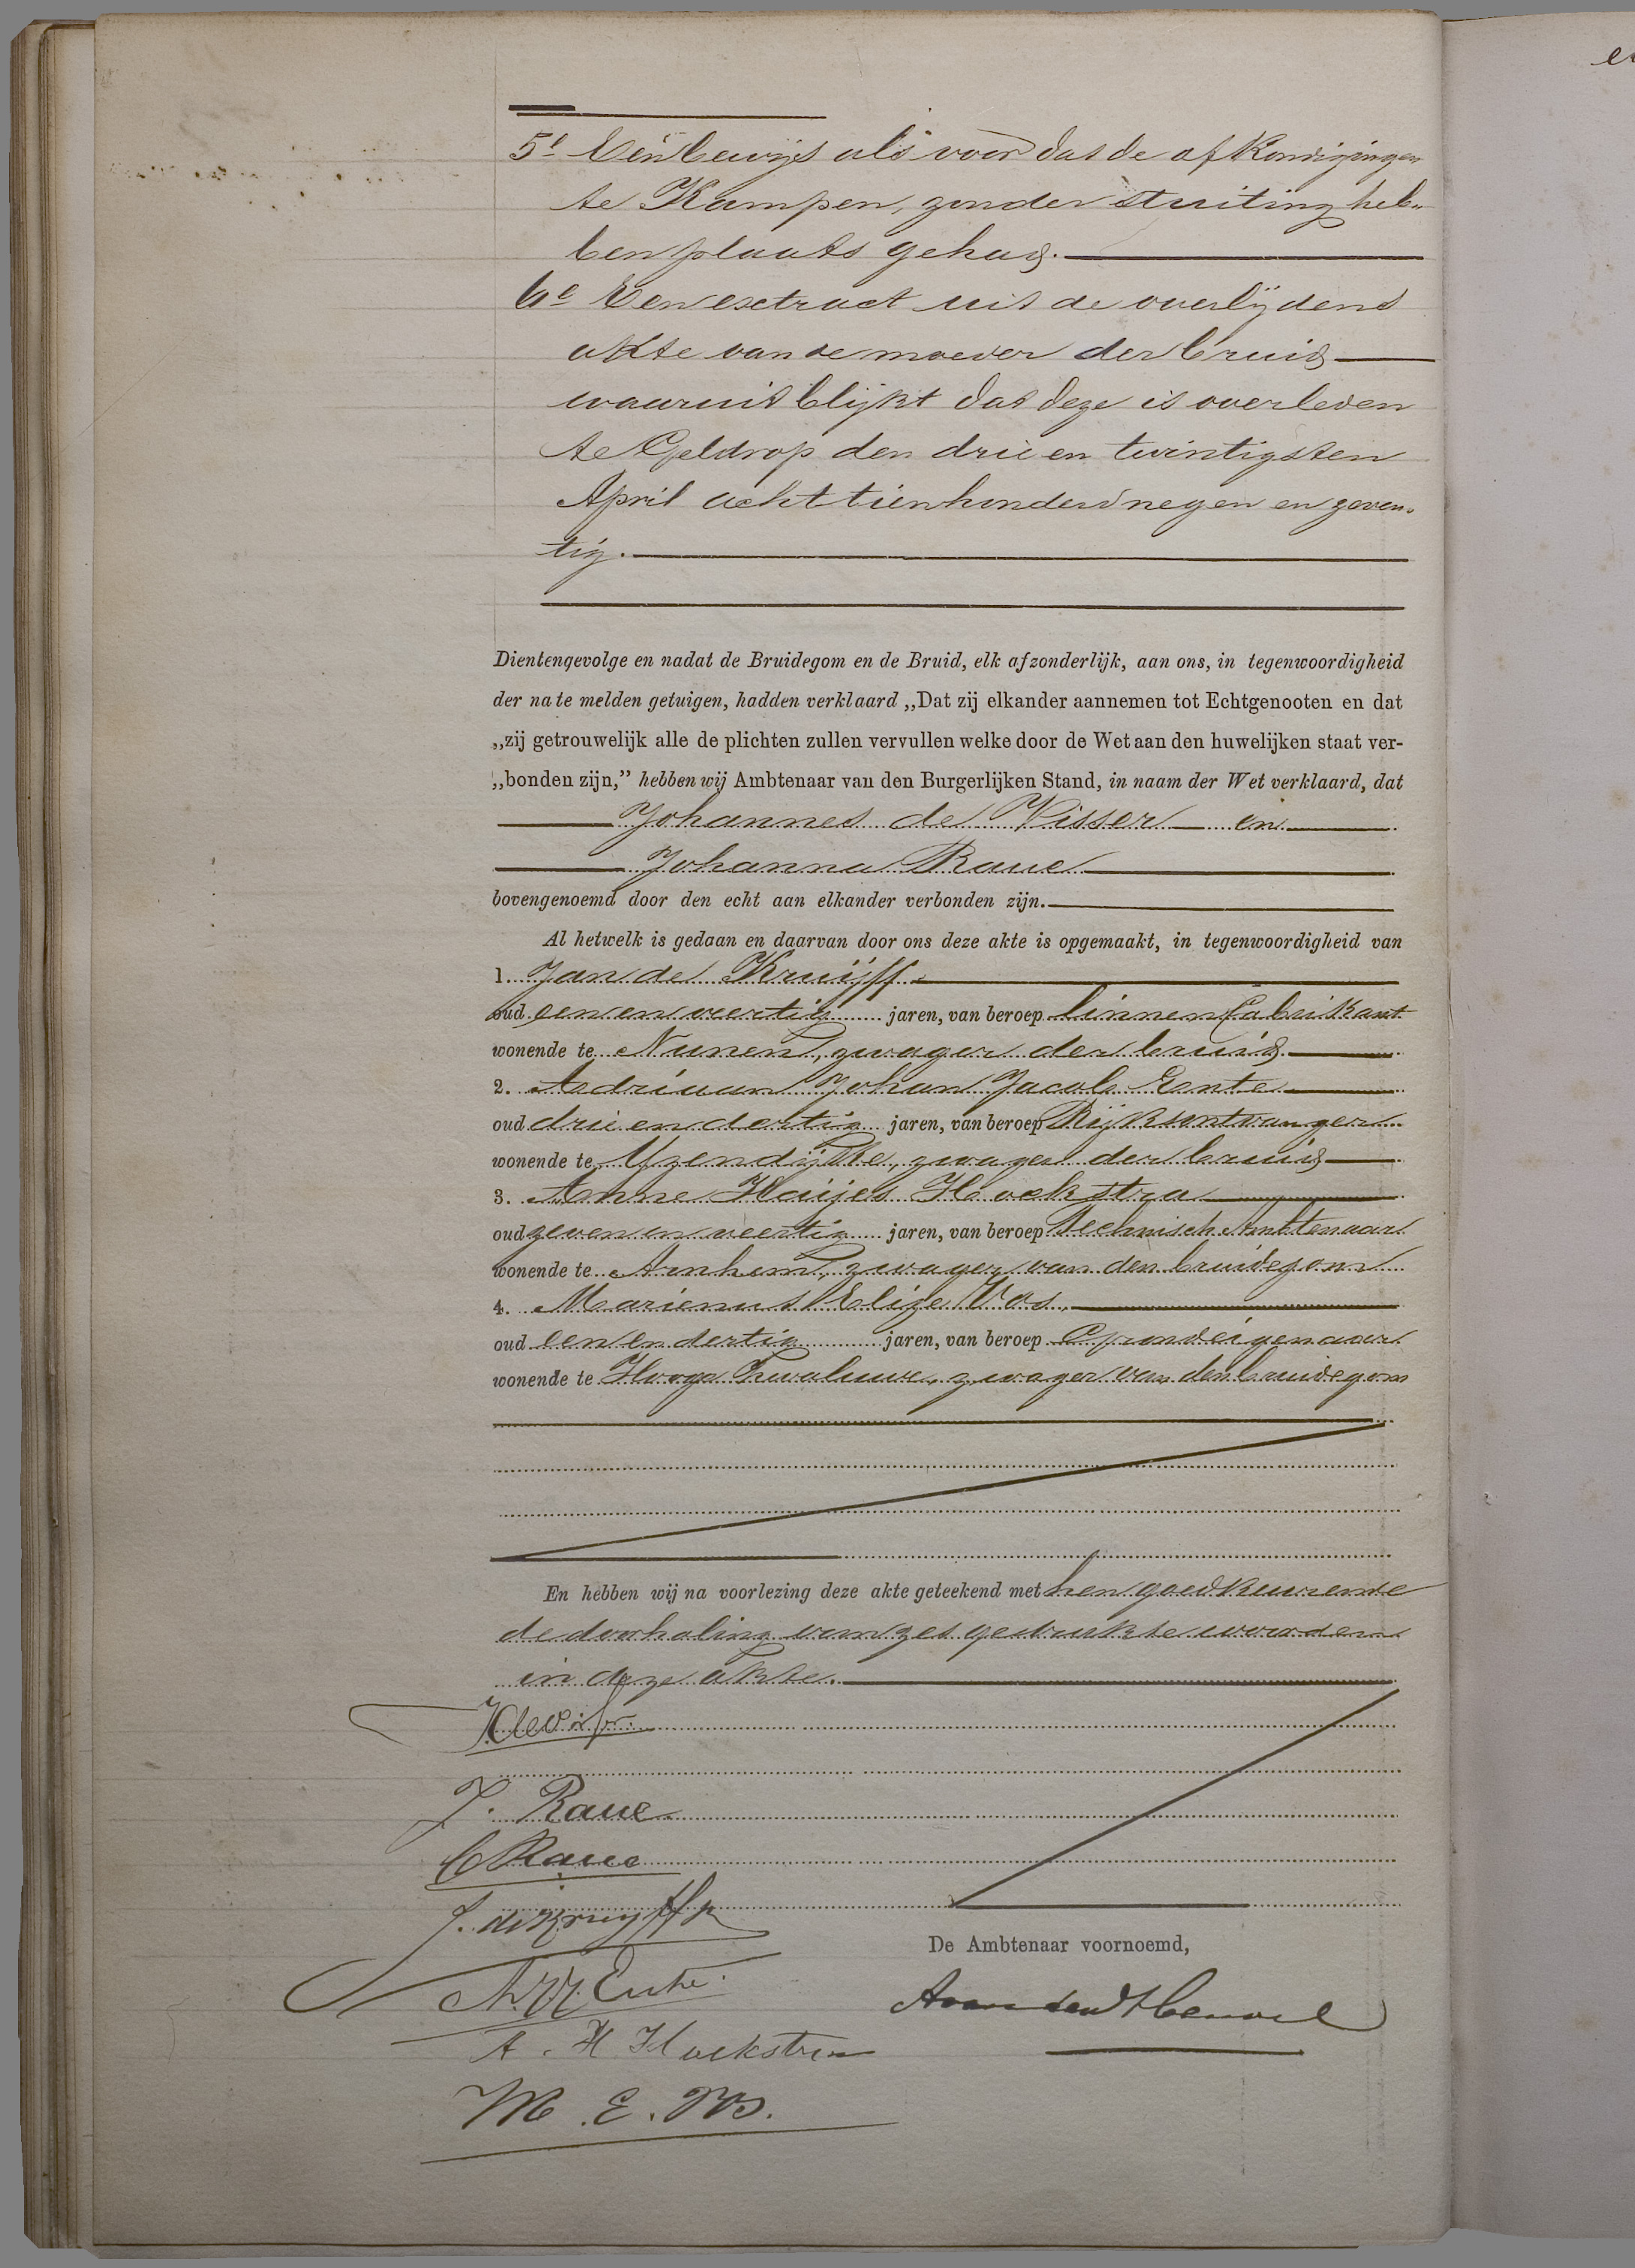 5e Een bewijs als voor dat de afkondigingen
te Kampen, zonder stuiting heb„
ben plaats gehad.
6e Een extract uit de overlijdens
akte van de moeder der bruid
waaruit blijkt dat deze is overleden
te Geldrop den drie en twintigsten
April acht tienhonderd negen en zeven„
tig.
Dientengevolge en nadat de Bruidegom en de Bruid, elk afzonderlijk, aan ons, in tegenwoordigheid
der na te melden getuigen, hadden verklaard „Dat zij elkander aannemen tot Echtgenooten en dat
„zij getrouwelijk alle de plichten zullen vervullen welke door de Wet aan den huwelijken staat ver-
„bonden zijn,” hebben wij Ambtenaar van den Burgerlijken Stand, in naam der Wet verklaard, dat
Johannes de Visser en
Johanna Raue
bovengenoemd door den echt aan elkander verbonden zijn.
Al hetwelk is gedaan en daarvan door ons deze akte is opgemaakt, in tegenwoordigheid van
1. Jan de Kruijff
oud een en veertig jaren, van beroep linnenfabrikant
wonende te Nunen, zwager der bruid
2. Adriaan Johan Jacob Ente
oud drie en dertig jaren, van beroep Rijksontvanger
wonende te IJzendijke, zwager der bruid
3. Anne Haijes Hoekstra
oud zeven en veertig jaren, van beroep technisch Ambtenaar
wonende te Arnhem, zwager van den bruidegom
4. Marienus Elize Vos
oud een en dertig jaren, van beroep Grondeigenaar
wonende te Hooge Zwaluwe, zwager van den bruidegom
En hebben wij na voorlezing deze akte geteekend met hen goedkeurende
de doorhaling van zes gedrukte woorden
in deze akte.
J de Visser
J. Raue
C Raue
J. de Kruyff
De Ambtenaar voornoemd,
A.J.J. Ente.
A van den Heuvel
A. H Hoekstra
M. E. Vos.